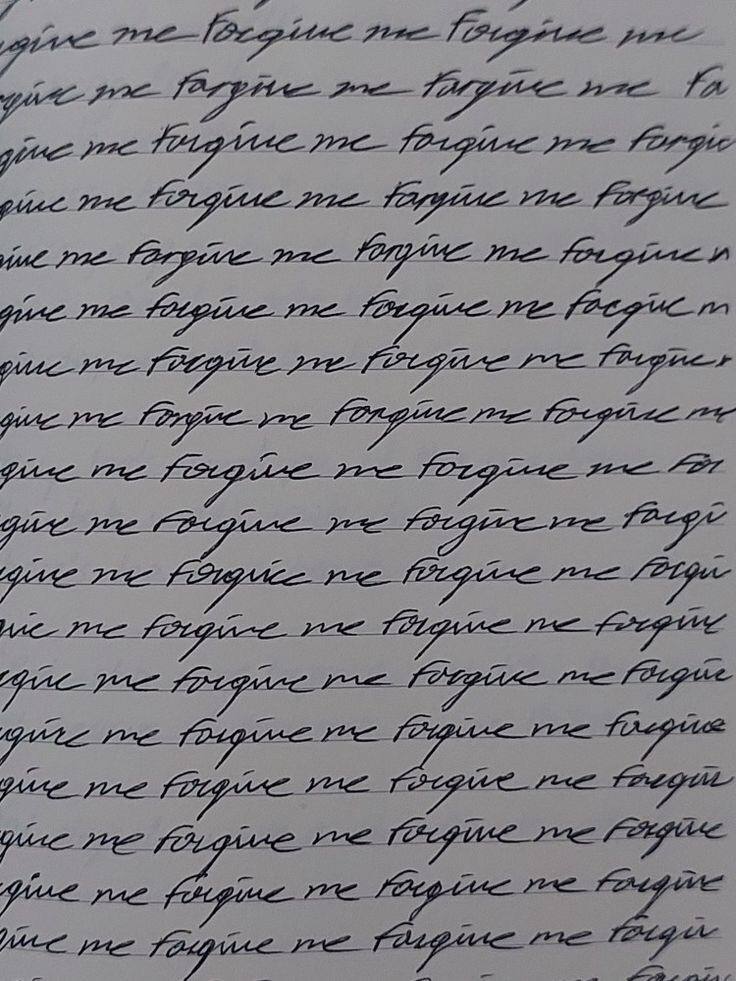 give me Forgive me Forgive me
give me Forgive me Forgive me Fo
give me Forgive me forgive me Forgiv
give me forgive me Forgive me Forgive
give me Forgive me Forgive me forgive m
give me forgive me forgive me forgive m
give me forgive me forgive me forgive
give me Forgive me Forgive me forgive me
give me Forgive me Forgive me For
give me Forgive me forgive me forgi
give me Forgive me forgive me forgiv
give me forgive me forgive me forgive
give me forgive me Forgive me forgive
give me forgive me forgive me forgive
give me forgive me forgive me forgive
give me forgive me forgive me Forgive
give me forgive me forgive me forgive
give me forgive me forgive me forgiv